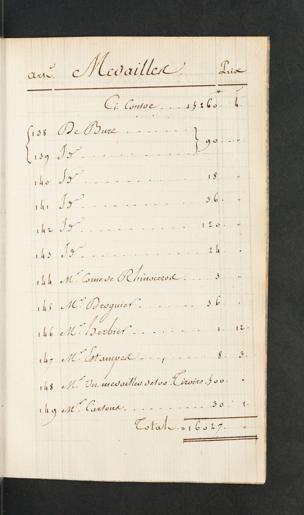 art. Medailles Prix
Ci Contre ... 15160 . 4
138 De Bure
139 Id ... 90 .
140 Id ... 18 .
141 Id ... 36 .
142 Id ... 120 .
143 Id ... 24 .
144 Mr. Corne de Rhinoceros ... 3 .
145 Mr. ... 36 .
146 Mr. herbier ... 1 . 12
147 Mr. Estampes ... 8 . 3
148 Mr. Un medailles de 100 Tiroirs 500 .
149 Mr. Cartons ... 30 . 1
Total . 16027 .